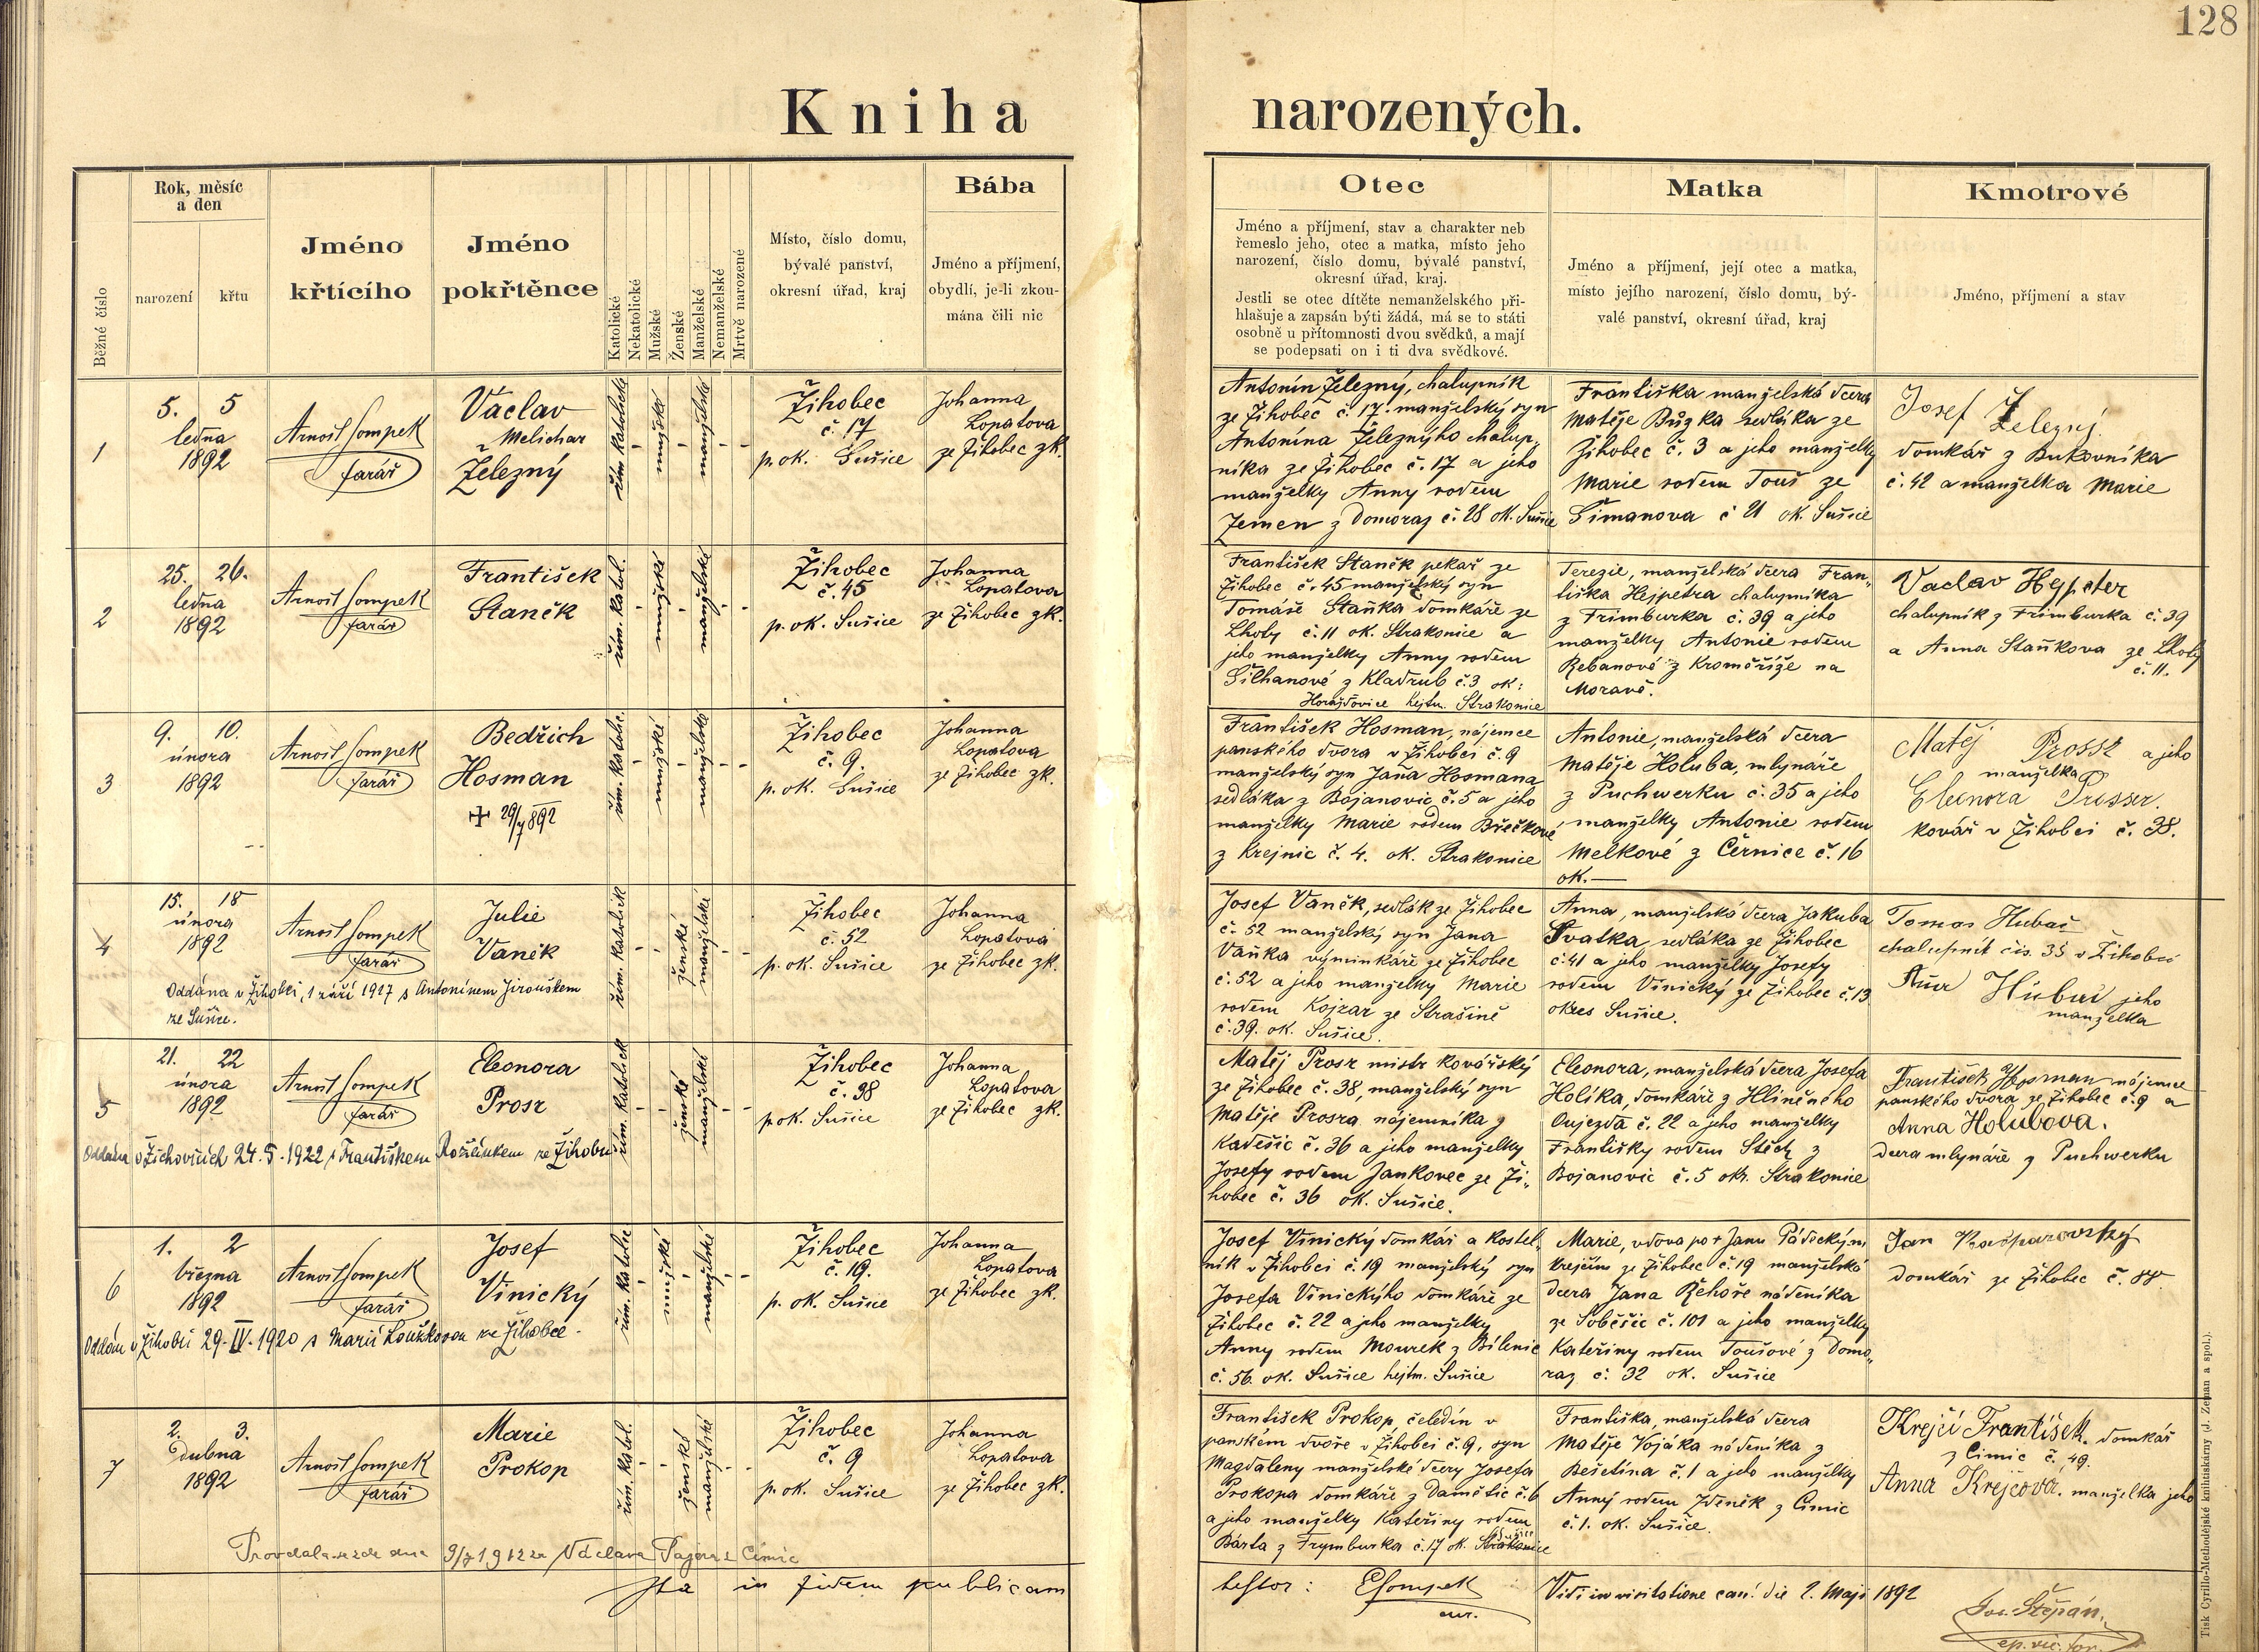 128
Kniha narozených.
Běžné číslo
Rok, měsíc
a den
narození
křtu
Jméno
křtícího
Jméno
pokřtěnce
Katolické
Nekatolické
Mužské
Ženské
Manželské
Nemanželské
Mrtvě narozené
Místo, číslo domu,
bývalé panství,
okresní úřad, kraj
Bába
Jméno a příjmení,
obydlí, je-li zkou-
mána čili nic
Otec
Jméno a příjmení, stav a charakter neb
řemeslo jeho, otec a matka, místo jeho
narození, číslo domu, bývalé panství,
okresní úřad, kraj.
Jestli se otec dítěte nemanželského při-
hlašuje a zapsán býti žádá, má se to státi
osobně u přítomnosti dvou svědků, a mají
se podepsati on i ti dva svědkové.
Matka
Jméno a příjmení, její otec a matka,
místo jejího narození, číslo domu, bý-
valé panství, okresní úřad, kraj
Kmotrové
Jméno, příjmení a stav
1
5. 5
ledna
1892
Arnošt Sompek
farář
Václav
Melichar
Železný
řím. katolické
mužské
manželské
Žihobec
č. 17
p. ok. Sušice
Johanna
Lopatova
ze Žihobec zk.
Antonín Železný, chalupník
ze Žihobec č. 17. manželský syn
Antonína Železnýho chalup-
níka ze Žihobec č. 17 a jeho
manželky Anny rodem
Zemen z Domoraz č. 28 ok. Sušice
Františka manželská dcera
Matěje Bůzka sedláka ze
Žihobec č. 3 a jeho manželky
Marie rodem Touš ze
Šimanova č 21 ok. Sušice
Josef Železný
domkář z Bukovníka
č. 42 a manželka Marie
2
25. 26.
ledna
1892
Arnošt Sompek
farář
František
Staněk
řím. katol.
mužské
manželské
Žihobec
č. 45
p. ok. Sušice
Johanna
Lopatova
ze Žihobec zk.
František Staněk pekař ze
Žihobec č. 45 manželský syn
Tomáše Staňka domkáře ze
Lhoty č. 11 ok. Strakonice a
jeho manželky Anny rodem
Šilhanové z Kladrub č. 3 ok:
Horažďovice hejtm. Strakonice
Terezie, manželská dcera Fran-
tiška Hejpetra chalupníka
z Frimburka č. 39 a jeho
manželky Antonie rodem
Rebanové z Kroměříže na
Moravě.
Vaclav Hejpeter
chalupník z Frimburka č. 39
a Anna Staňkova ze Lhoty
č. 11.
3
9. 10.
února
1892
Arnošt Sompek
farář
Bedřich
Hosman
řím. katolic.
mužské
manželské
Žihobec
č. 9.
p. ok. Sušice
Johanna
Lopatova
ze Žihobec zk.
František Hosman, nájemce
panského dvora v Žihobci č. 9
manželský syn Jana Hosmana
sedláka z Bojanovic č. 5 a jeho
manželky Marie rodem Břečkové
z Krejnic č. 4. ok. Strakonice
Antonie, manželská dcera
Matěje Holuba, mlynáře
z Puchwerku č. 35 a jeho
manželky Antonie rodem
Melkové z Černice č. 16
ok. —
Matěj Prossr a jeho
manželka
Eleonora Prosser.
kovář v Žihobci č. 38.
4
15. 18
února
1892
Arnošt Sompek
farář
Julie
Vaněk
Oddána v Žihobci, 1 září 1917 s Antonínem Jirouškem
ze Sušice.
řím. katolick
ženské
manželské
Žihobec
č. 52
p. ok. Sušice
Johanna
Lopatova
ze Žihobec zk.
Josef Vaněk, sedlák ze Žihobec
č. 52 manželský syn Jana
Vaňka výminkáře ze Žihobec
č. 52 a jeho manželky Marie
rodem Kojzar ze Strašině
č. 39. ok. Sušice.
Anna, manželská dcera Jakuba
Svatka, sedláka ze Žihobec
č. 41 a jeho manželky Josefy
rodem Vinický ze Žihobec č. 13
okres Sušice.
Tomas Hubač
chalupník čis. 35 v Žihobci
Hubač jeho
manželka
5
21. 22
února
1892
Arnošt Sompek
farář
Eleonora
Prosr
Oddána v Žichovicích 24. 5. 1922 s Františkem Rožánkem ze Žihobce
řím. katolick
ženské
manželské
Žihobec
č. 38
p. ok. Sušice
Johanna
Lopatova
ze Žihobec zk.
Matěj Prosr mistr kovářský
ze Žihobec č. 38, manželský syn
Matěje Prosra nájemníka z
Kadešic č. 36 a jeho manželky
Josefy rodem Jankovec ze Ži-
hobec č. 36 ok. Sušice.
Eleonora, manželská dcera Josefa
Holíka, domkáře z Hliněného
Oujezda č. 22 a jeho manželky
Františky rodem Stěch z
Bojanovic č. 5 okr. Strakonice
František Hosman nájemce
panského dvora ze Žihobec č. 9 a
Anna Holubova.
dcera mlynáře z Puchwerku
6
1. 2
března
1892
Arnošt Sompek
farář
Josef
Vinický
Oddán v Žihobci 29. IV. 1920 s Marií Loužkovou ze Žihobce.
řím. katolic
mužské
manželské
Žihobec
č. 19.
p. ok. Sušice
Johanna
Lopatova
ze Žihobec zk.
Josef Vinický domkář a kostel-
ník v Žihobci č. 19 manželský syn
Josefa Vinickýho domkáře ze
Žihobec č. 22 a jeho manželky
Anny rodem Mourek z Bílenic
č. 56. ok. Sušice hejtm. Sušice
Marie, vdova po + Janu Pádeckým
krejčím ze Žihobec č. 19 manželská
dcera Jana Řehoře nádeníka
ze Soběšic č. 101 a jeho manželky
Kateřiny rodem Toušové z Domo-
raz č. 32 ok. Sušice
Jan Kašparovský
domkář ze Žihobec č. 88
7
2. 3.
dubna
1892
Arnošt Sompek
farář
Marie
Prokop
řím. katol.
ženské
manželské
Žihobec
č. 9
p. ok. Sušice
Johanna
Lopatova
ze Žihobec zk.
František Prokop, čeledín v
panském dvoře v Žihobci č. 9, syn
Magdaleny manželské dcery Josefa
Prokopa domkáře z Damětic č. 6
a jeho manželky Kateřiny rodem
Bárta z Frymburka č. 17 ok. Strakonice
Sušice
Františka, manželská dcera
Matěje Vojáka nádeníka z
Bešetína č. 1 a jeho manželky
Anny rodem Zdeněk z Čimic
č. 1. ok. Sušice.
Krejčí František. domkář
z Cimic č. 49.
Anna Krejčová. manželka jeho
Provdala se zde dne 9/7 1912 za Václava z Čimic
Ita in fidem publicam
testor: ESompek
cur.
Vidi in visitatione can. die 2. Maji 1892
Jos. Štěpán,
ep. vic. for.
Tisk Cyrillo-Methodějské knihtiskárny (J. Zeman a spol.).